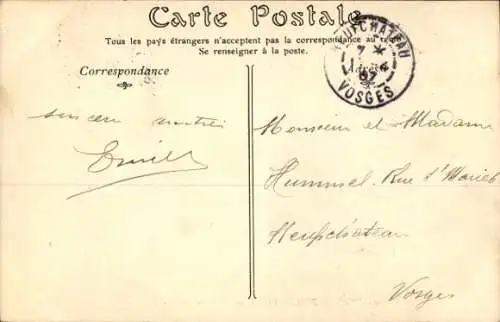 Carte Postale
Tous les pays étrangers n'acceptent pas la correspondance au
Se renseigner à la poste.
NEUFCHATEAU
7 *
07
VOSGES
Correspondance
Adresse
sincère
Emile
Monsieur et Madame
Hummel. Rue d'
Neufchateau
Vosges